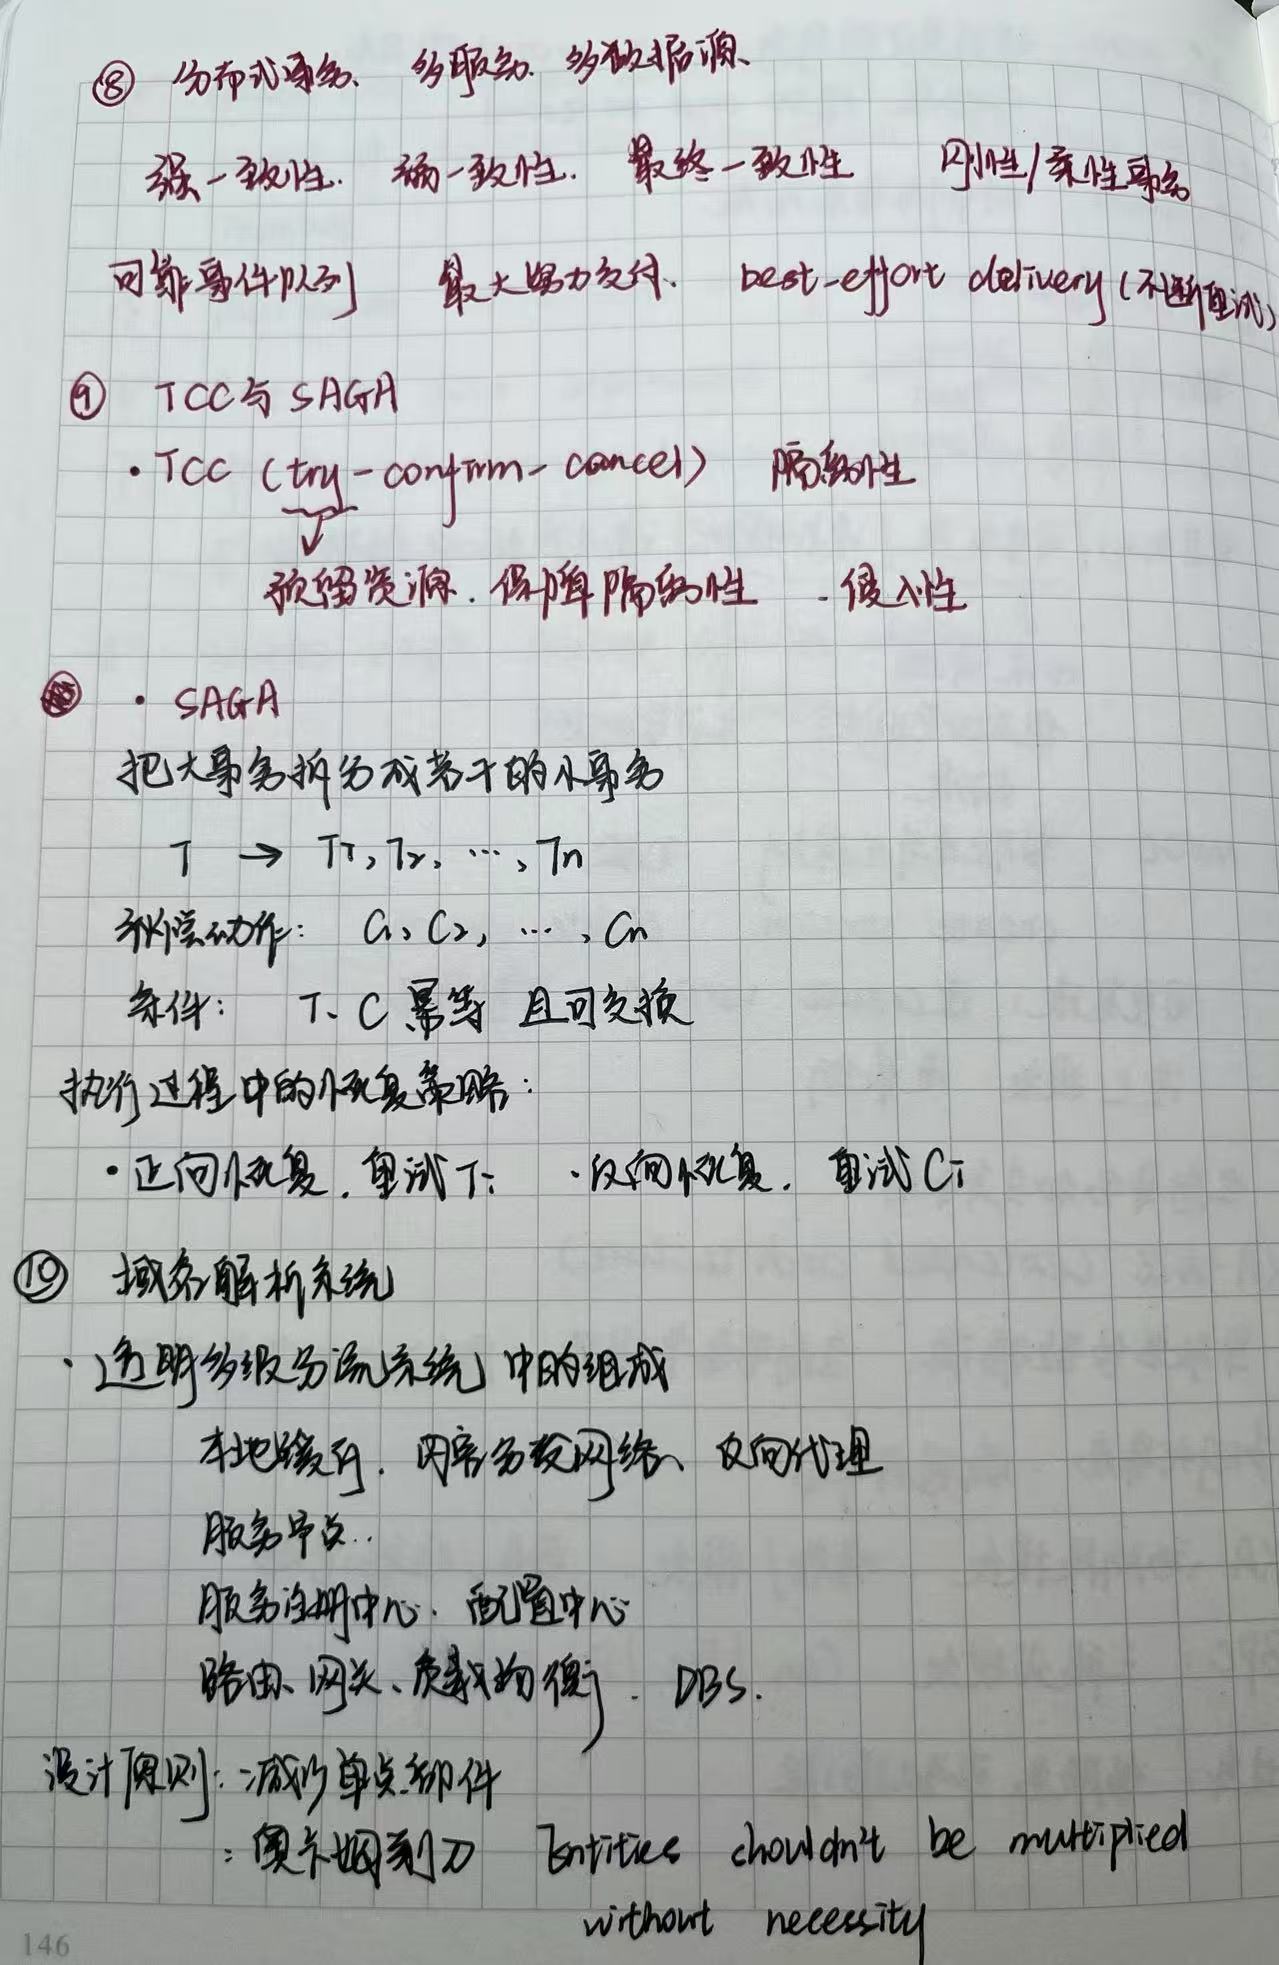 ⑧ 分布式事务、 多服务、多数据源、
强一致性. 弱一致性. 最终一致性 刚性/柔性事务
可靠事件队列 最大努力交付、 best-effort delivery (不断重试)
⑨ TCC与SAGA
· TCC (try-confirm-cancel) 隔离性
↓
预留资源. 保障隔离性 . 侵入性
· SAGA
把大事务拆分成若干的小事务
T → T1, T2, …, Tn
补偿动作: C1, C2, …, Cn
条件: T、C 幂等 且可交换
执行过程中的恢复策略:
· 正向恢复. 重试Ti · 反向恢复. 重试Ci
⑩ 域名解析系统
· 透明多级分流系统 中的组成
本地缓存. 内容分发网络、反向代理
服务节点..
服务注册中心. 配置中心
路由、网关、负载均衡. DBS.
设计原则: :减少单点部件
:奥卡姆剃刀 Entities shouldn't be multiplied
without necessity
146